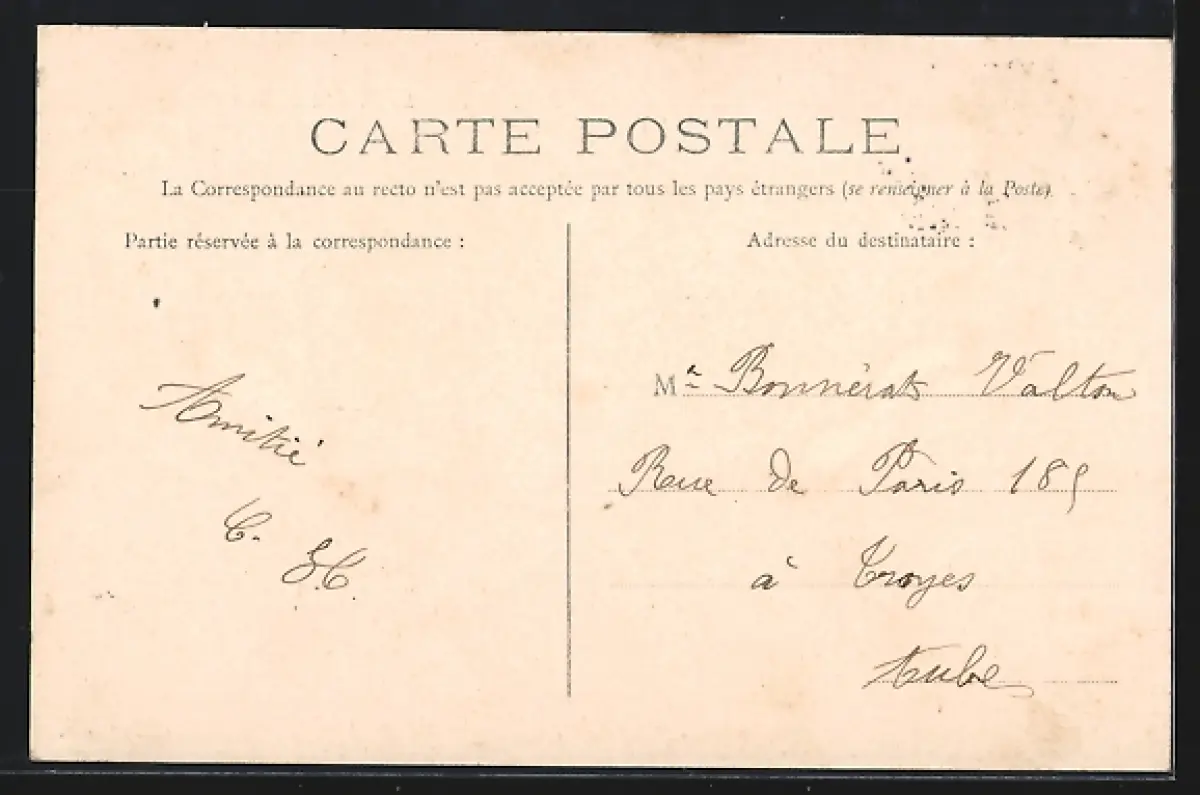 CARTE POSTALE
La Correspondance au recto n'est pas acceptée par tous les pays étrangers (se renseigner à la Poste).
Partie réservée à la correspondance :
Amitié
Adresse du destinataire :
Bonnérat Valton
Rue de Paris 185
à Troyes
Aube